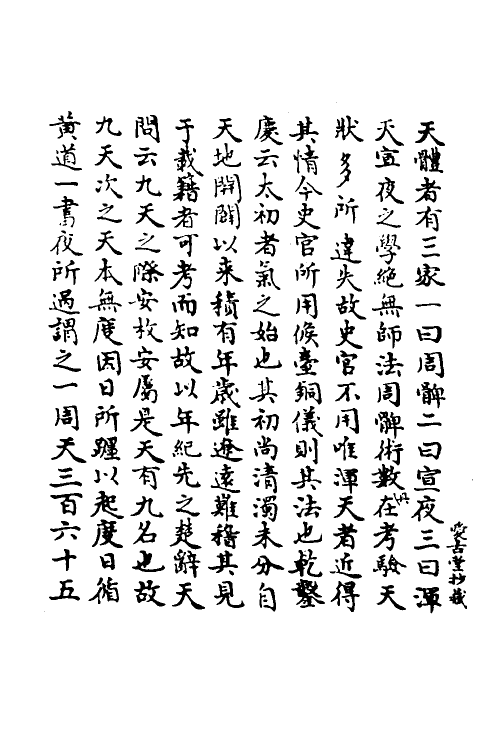 天體者有三家一曰周髀二曰宣夜三曰渾
天宣夜之學絶無師法周髀術數具在考驗天
狀多所違失故史官不用唯渾天者近得
其情今史官所用候臺銅儀則其法也乾鑿
度云太初者氣之始也其初尚清濁未分自
天地開闢以来積有年歲雖遼遠難稽其見
于載籍者可考而知故以年紀先之楚辭天
問云九天之際安放安屬是天有九名也故
九天次之天本無度因日所躔以起度日循
黃道一晝夜所過謂之一周天三百六十五